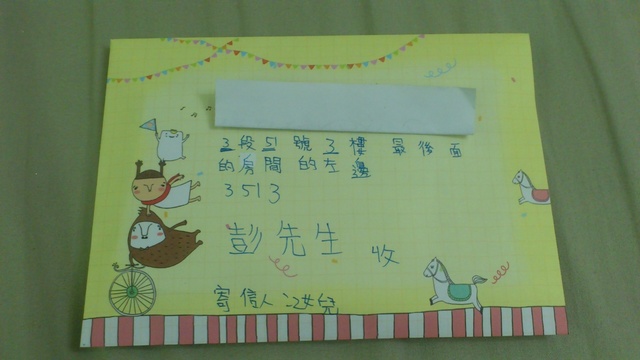 3段51號3樓最後面
的房間的左邊
3513
彭先生 收
寄信人:女兒